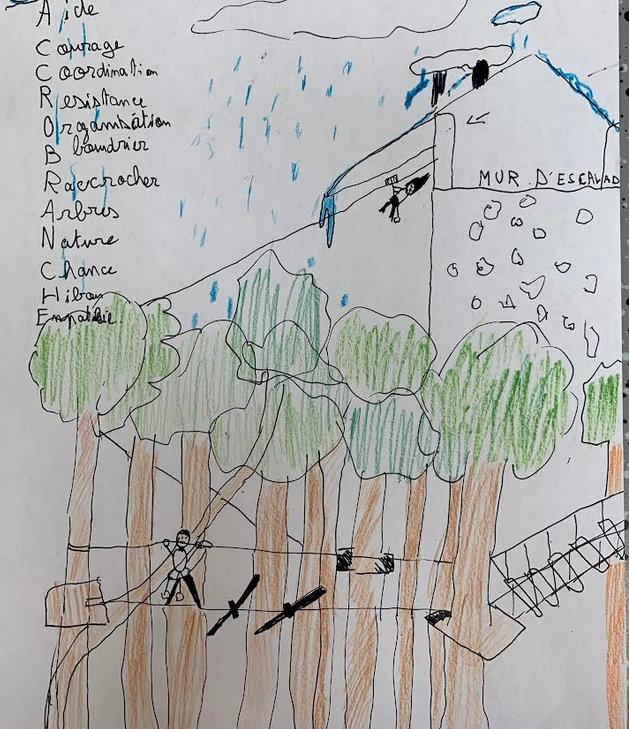 Aide
Courage
Coordination
Resistance
Organisation
Baudrier
Raccrocher
Arbres
Nature
Chance
Hibou
Empathie
MUR D'ESCALAD